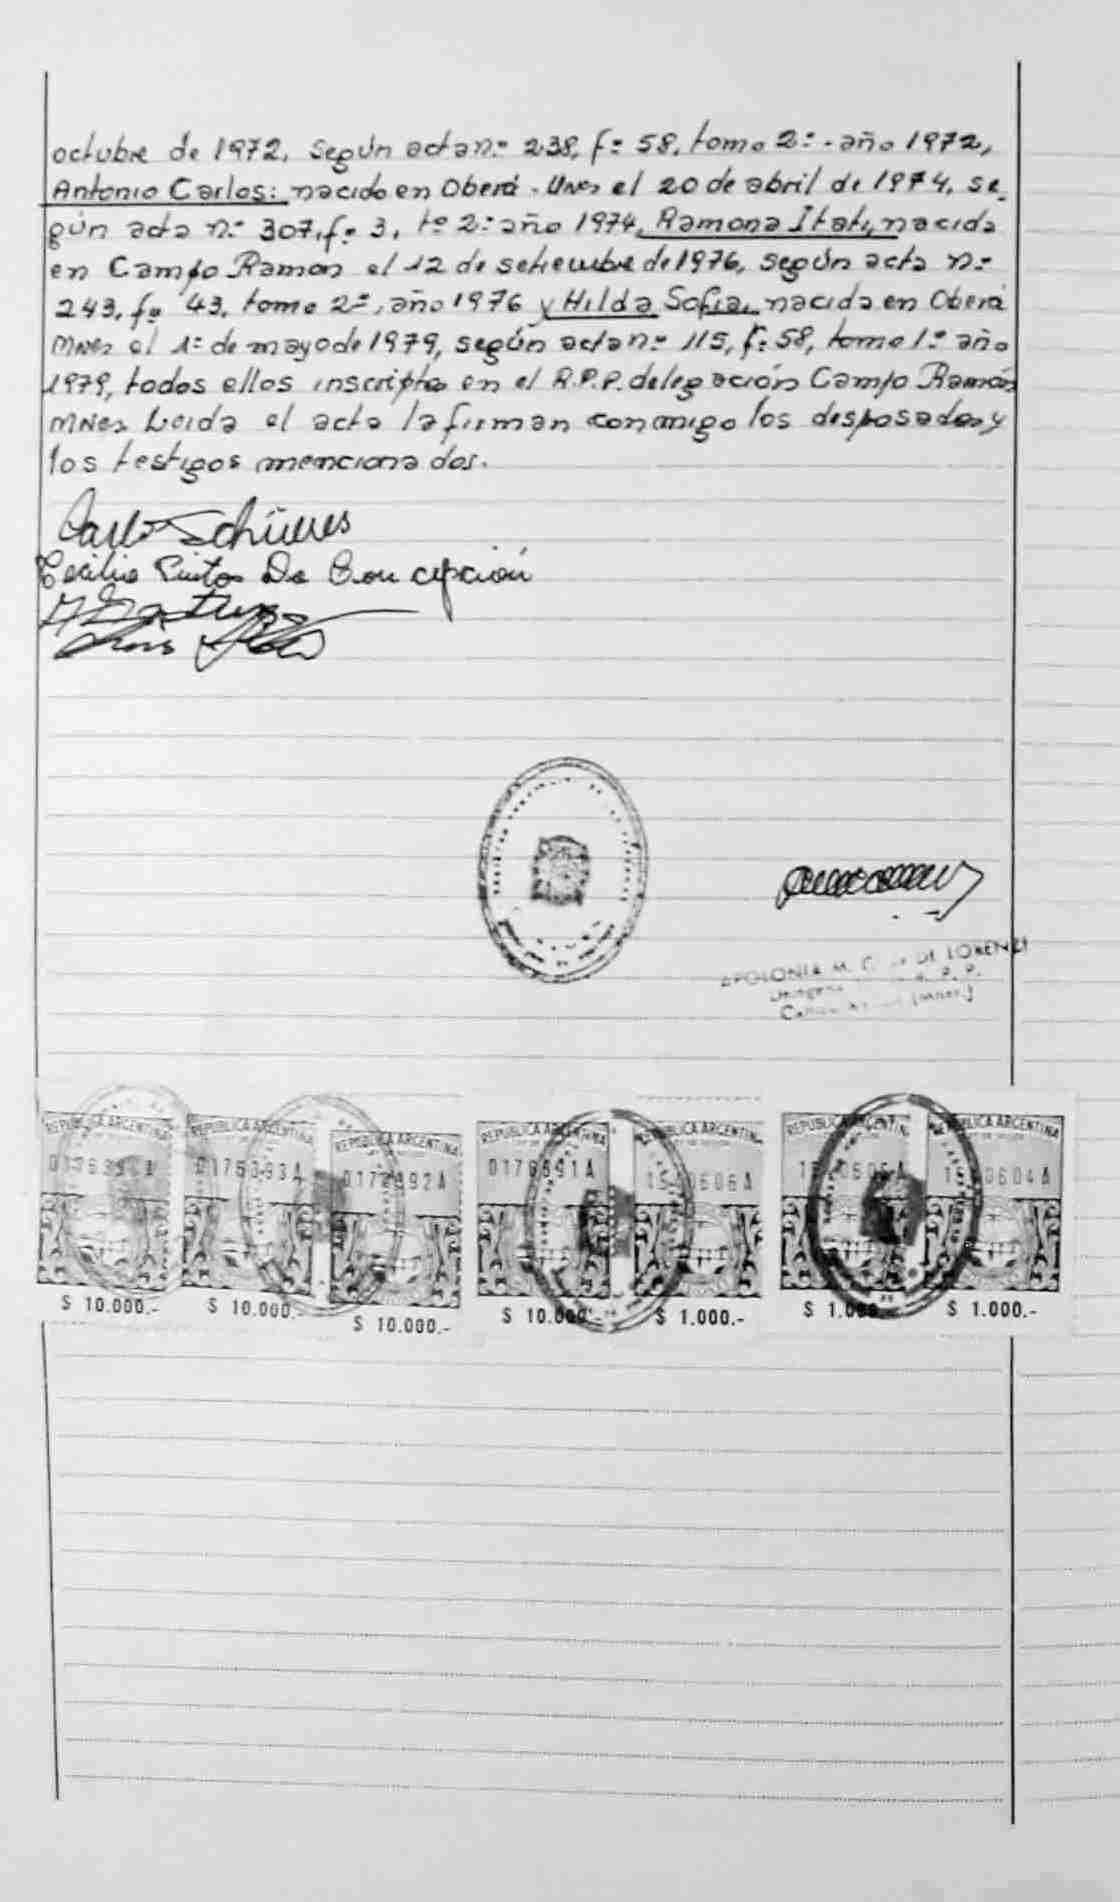 octubre de 1972, según acta n.º 238, fº 58, tomo 2º - año 1972,
Antonio Carlos: nacido en Oberá - Mnes el 20 de abril de 1974, se_
gún acta nº 307, fº 3, tº 2º año 1974, Ramona Itatí, nacida
en Campo Ramon el 12 de setiembre de 1976, según acta nº
243, fº 43, tomo 2º, año 1976 y Hilda Sofia, nacida en Oberá
Mnes el 1º de mayo de 1979, según acta nº 115, fº 58, tomo 1º año
1979, todos ellos inscriptos en el R.P.P. delegación Campo Ramón
Mnes Leida el acta la firman conmigo los desposados y
los testigos mencionados.
Cecilia Pintos De Concepción
APOLONIA M. C. DE DI LORENZI
R. P. P.
(Mnes.)
REPUBLICA ARGENTINA
REPUBLICA ARGENTINA
REPUBLICA ARGENTINA
REPUBLICA ARGENTINA
REPUBLICA ARGENTINA
REPUBLICA ARGENTINA
REPUBLICA ARGENTINA
$ 10.000.-
$ 10.000.-
$ 10.000.-
$ 10.000.-
$ 1.000.-
$ 1.000.-
$ 1.000.-